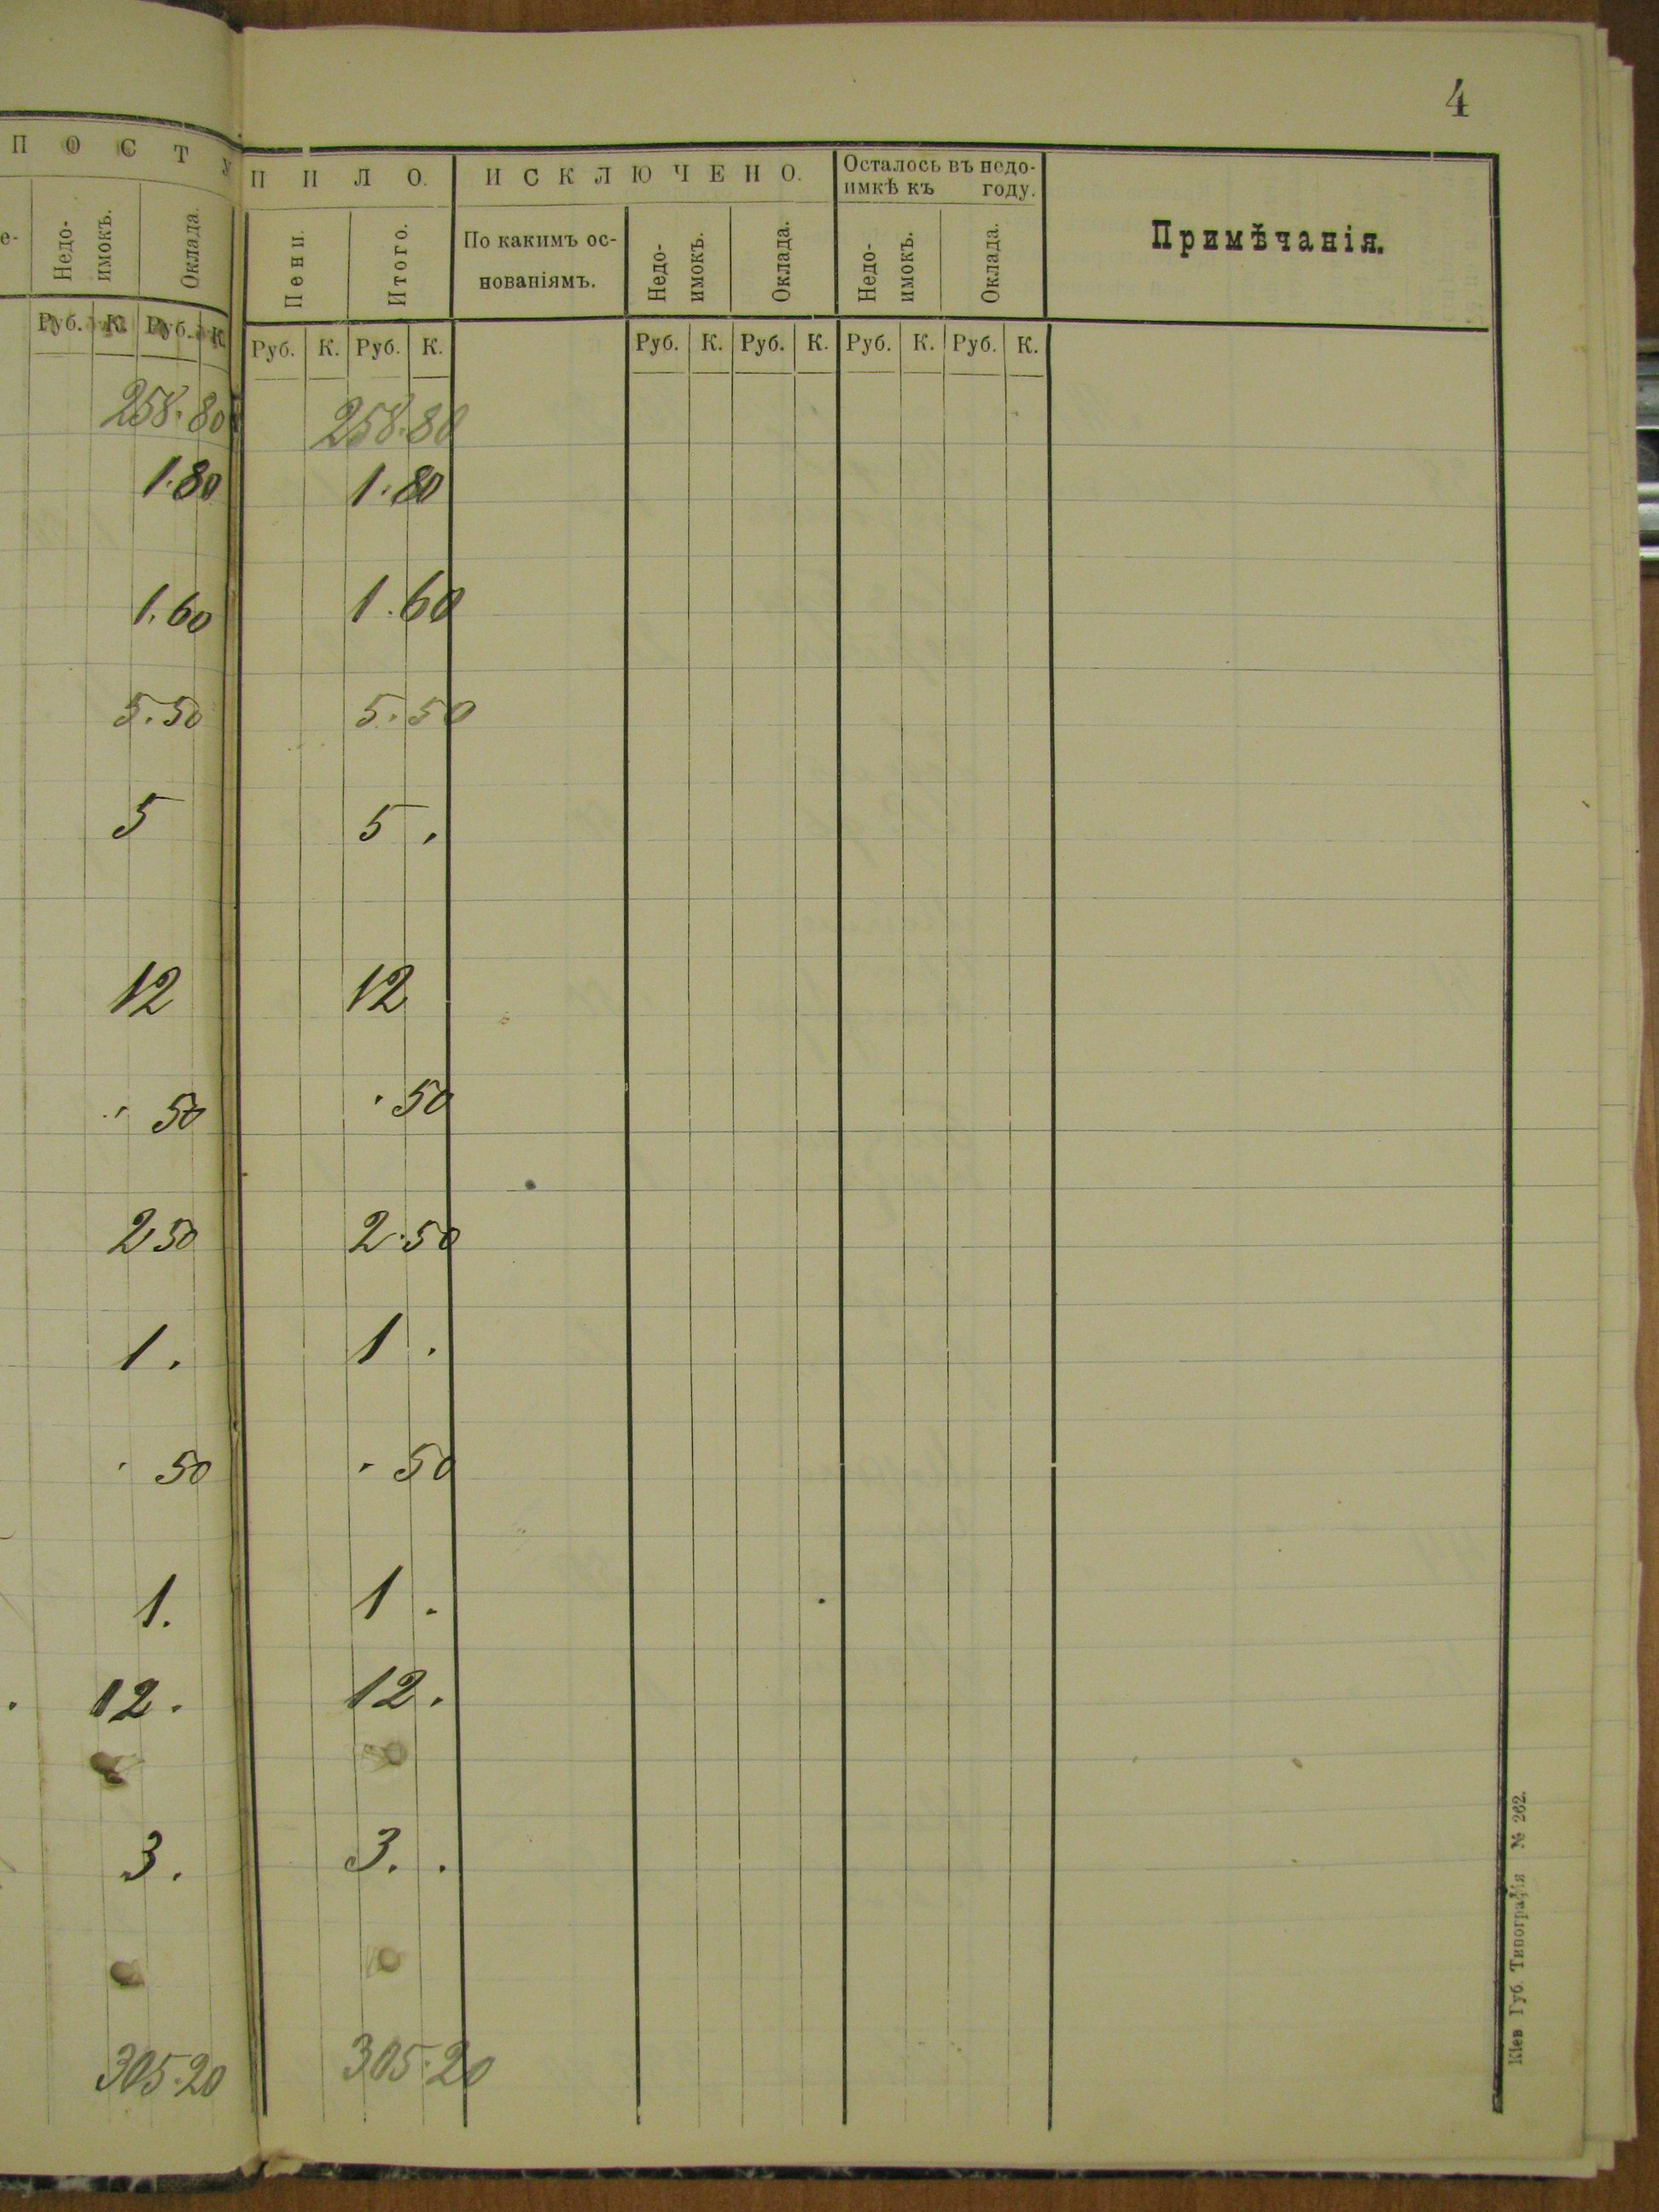 4
П О С Т У П И Л О. И С К Л Ю Ч Е Н О. Осталось въ недо-
имкѣ къ году.
е- Недо-
имокъ. Оклада. Пени. Итого. По какимъ ос-
нованіямъ. Недо-
имокъ. Оклада. Недо-
имокъ. Оклада. Примѣчанія.
Руб. К. Руб. К Руб. К. Руб. К. Руб. К. Руб. К. Руб. К. Руб. К.
258.80 258.80
1.80 1.80
1.60 1.60
5.50 5.50
5 5.
12 12
. 50 . 50
2 50 2.50
1. 1.
. 50 . 50
1. 1.
12. 12.
3. 3. .
305.20 305.20
Кіев Губ. Типографія № 262.